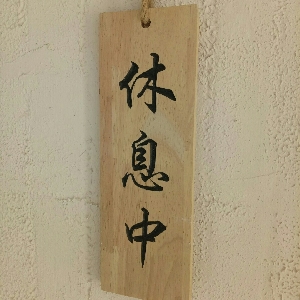 休息中